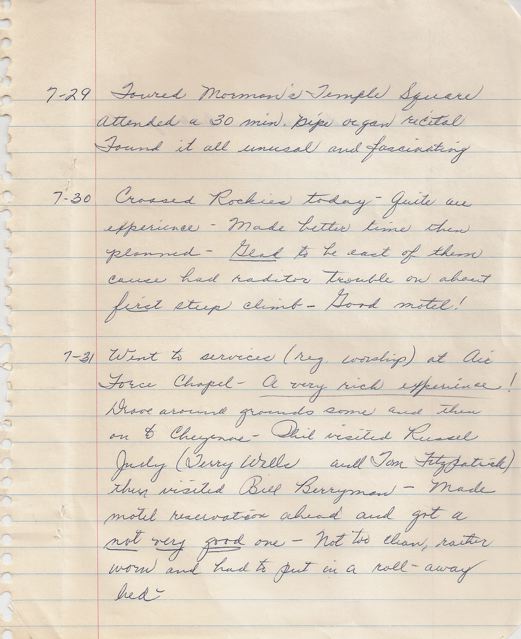 7-29 Toured Morman's Temple Square
Attended a 30 min. pipe organ recital
Found it all unusal and fascinating
7-30 Crossed Rockies today - Quite an
experience - Made better time then
planned - Glad to be east of them
cause had raditor trouble on about
first steep climb - Good motel!
7-31 Went to services (reg worship) at Air
Force Chapel - A very rich experience!
Drove around grounds some and then
on to Cheyenne - Phil visited Russel
Judy (Terry Wells and Tom Fitzpatrick)
then visited Bill Berryman - Made
motel reservation ahead and got a
not very good one - Not too clean, rather
worn and had to put in a roll-away
bed -